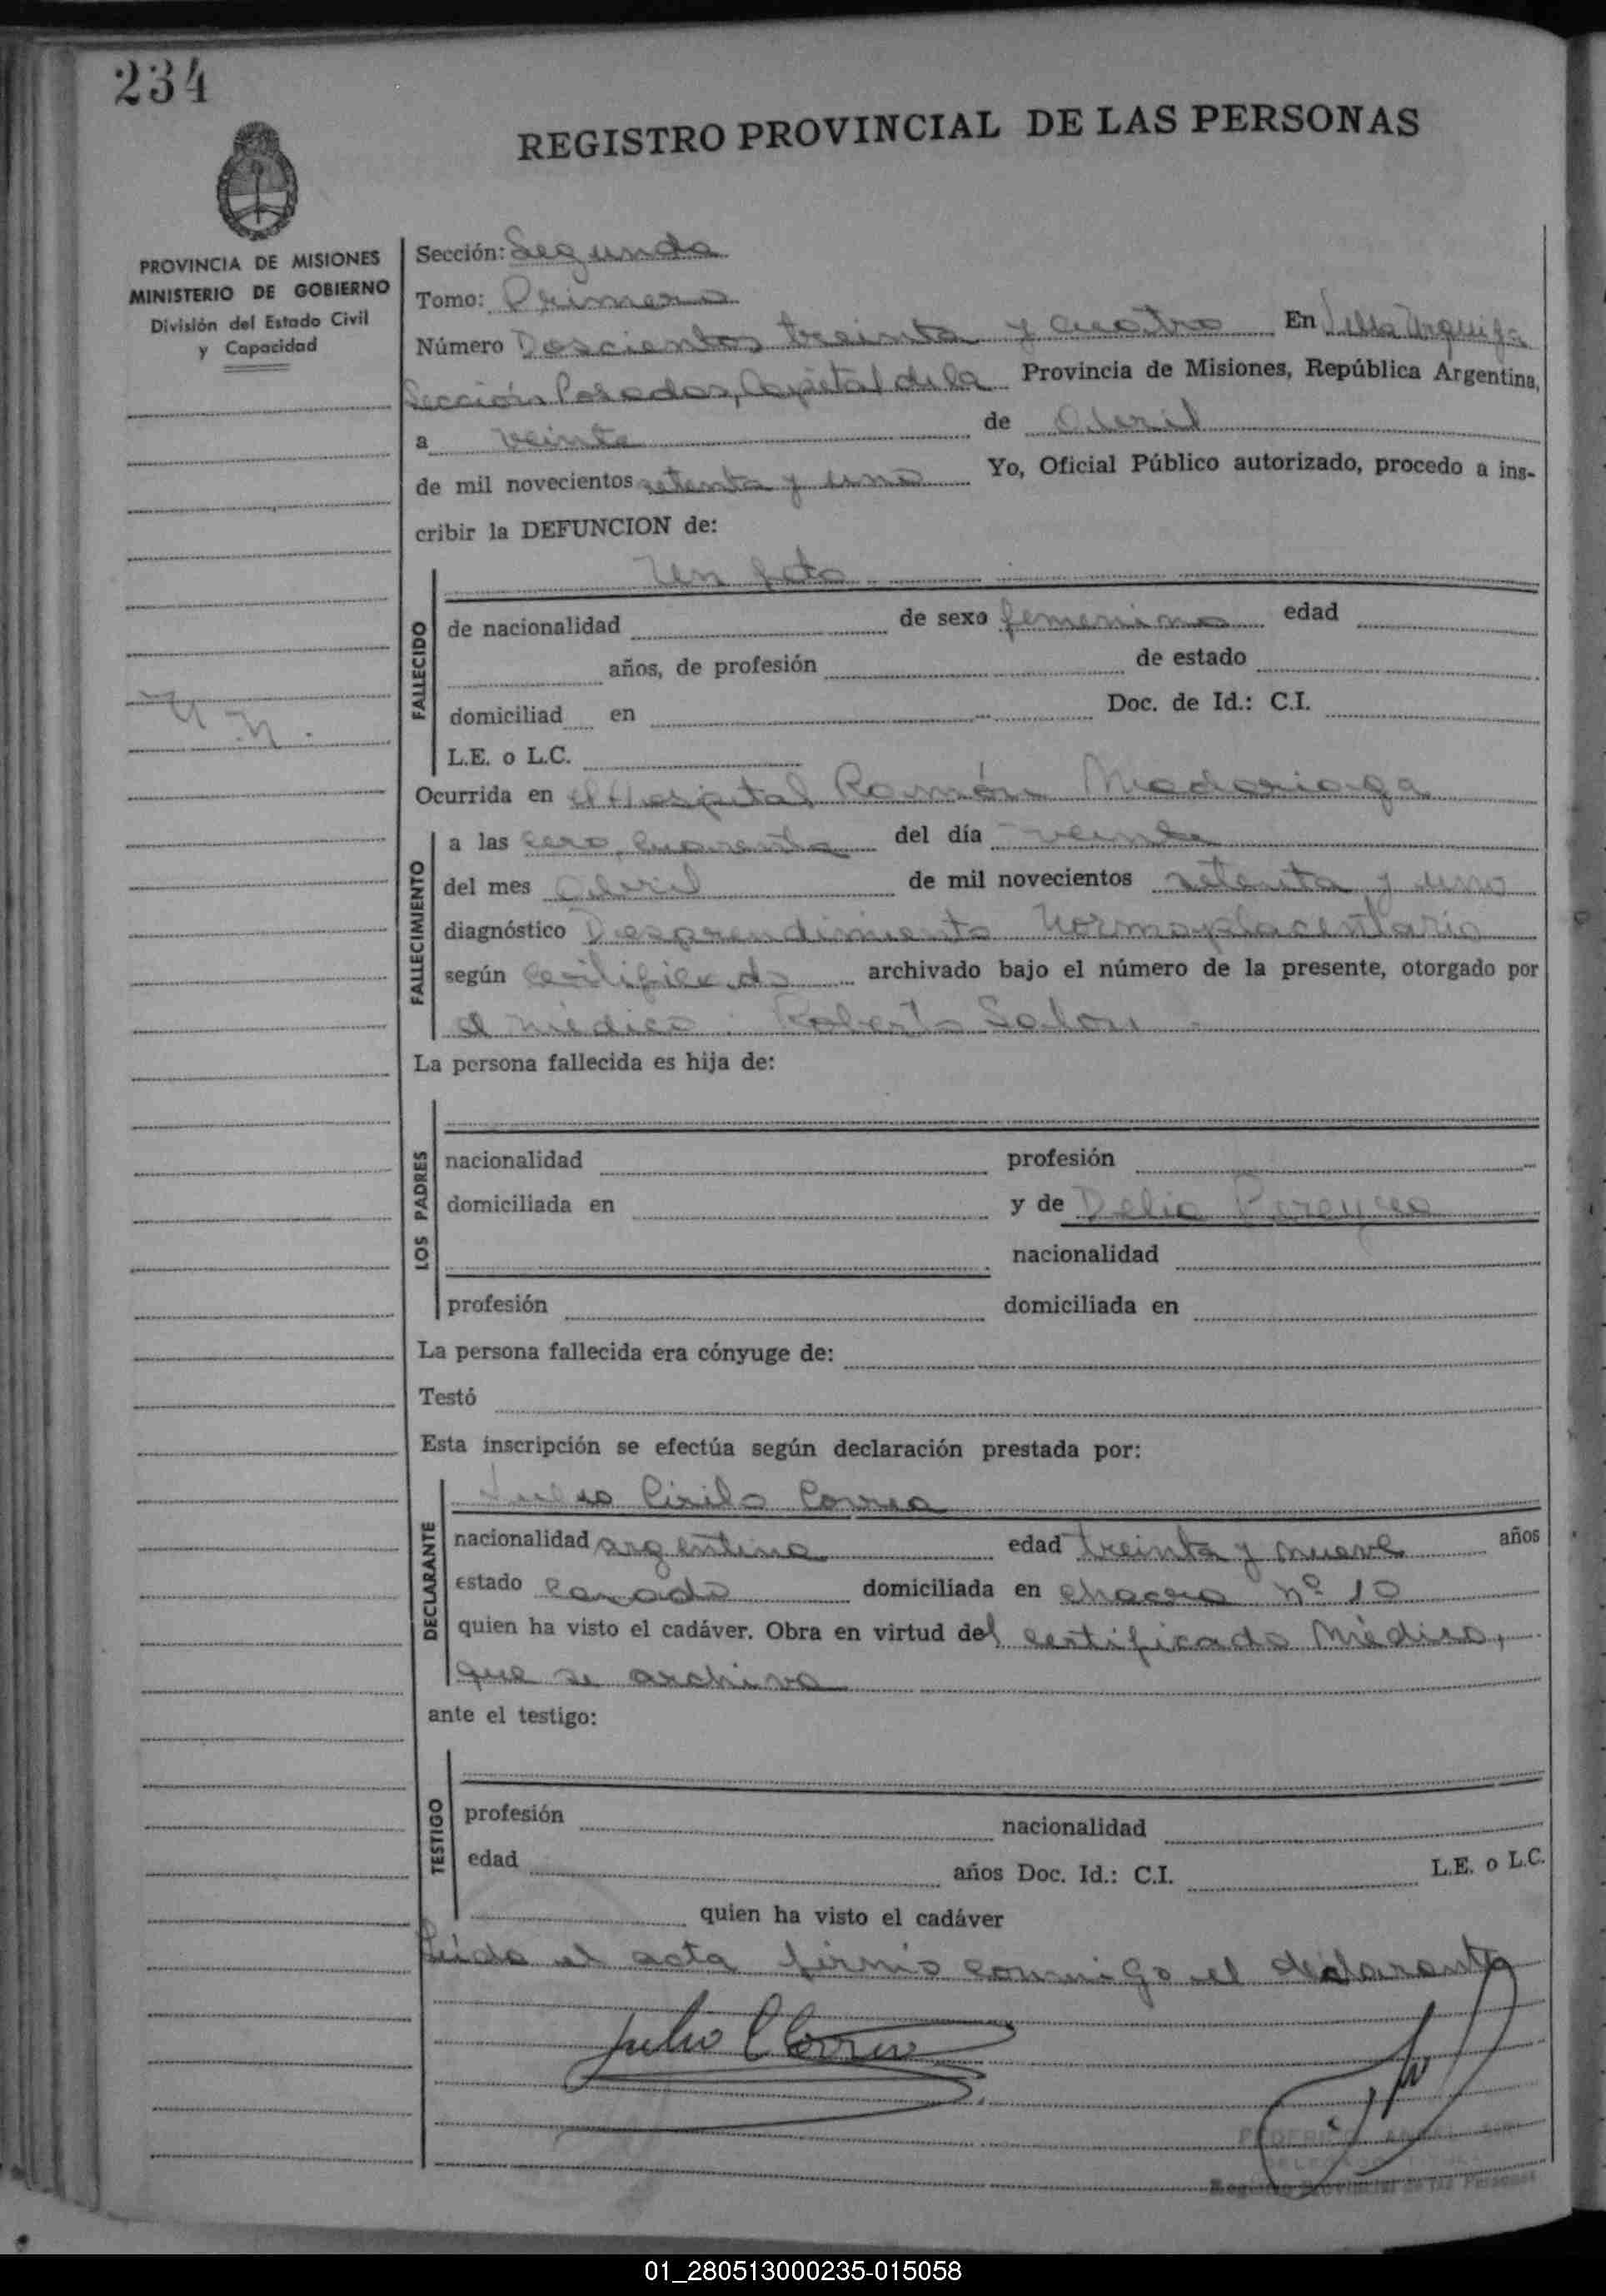 234
REGISTRO PROVINCIAL DE LAS PERSONAS
PROVINCIA DE MISIONES
MINISTERIO DE GOBIERNO
División del Estado Civil
y Capacidad
N.N.
Sección: Segunda
Tomo: Primero
Número Doscientos treinta y cuatro En Villa Urquiza
Sección Posadas, Capital de la Provincia de Misiones, República Argentina,
a veinte de Abril
de mil novecientos setenta y uno Yo, Oficial Público autorizado, procedo a ins-
cribir la DEFUNCION de:
Un feto
FALLECIDO
de nacionalidad de sexo femenino edad
años, de profesión de estado
domiciliad en Doc. de Id.: C.I.
L.E. o L.C.
Ocurrida en el Hospital Ramón Madariaga
FALLECIMIENTO
a las cero, cuarenta del día veinte
del mes Abril de mil novecientos setenta y uno
diagnóstico Desprendimiento Normoplacentario
según Certificado archivado bajo el número de la presente, otorgado por
el médico: Roberto
La persona fallecida es hija de:
LOS PADRES
nacionalidad profesión
domiciliada en y de Delia Pereyra
nacionalidad
profesión domiciliada en
La persona fallecida era cónyuge de:
Testó
Esta inscripción se efectúa según declaración prestada por:
DECLARANTE
Julio Cirilo Correa
nacionalidad argentina edad treinta y nueve años
estado casado domiciliada en chacra nº 10
quien ha visto el cadáver. Obra en virtud del certificado Médico,
que se archiva
ante el testigo:
TESTIGO
profesión nacionalidad
edad años Doc. Id.: C.I. L.E. o L.C.
quien ha visto el cadáver
Leída el acta firmó conmigo el declarante
Julio C Correa
Registro Provincial de las Personas
01_280513000235-015058